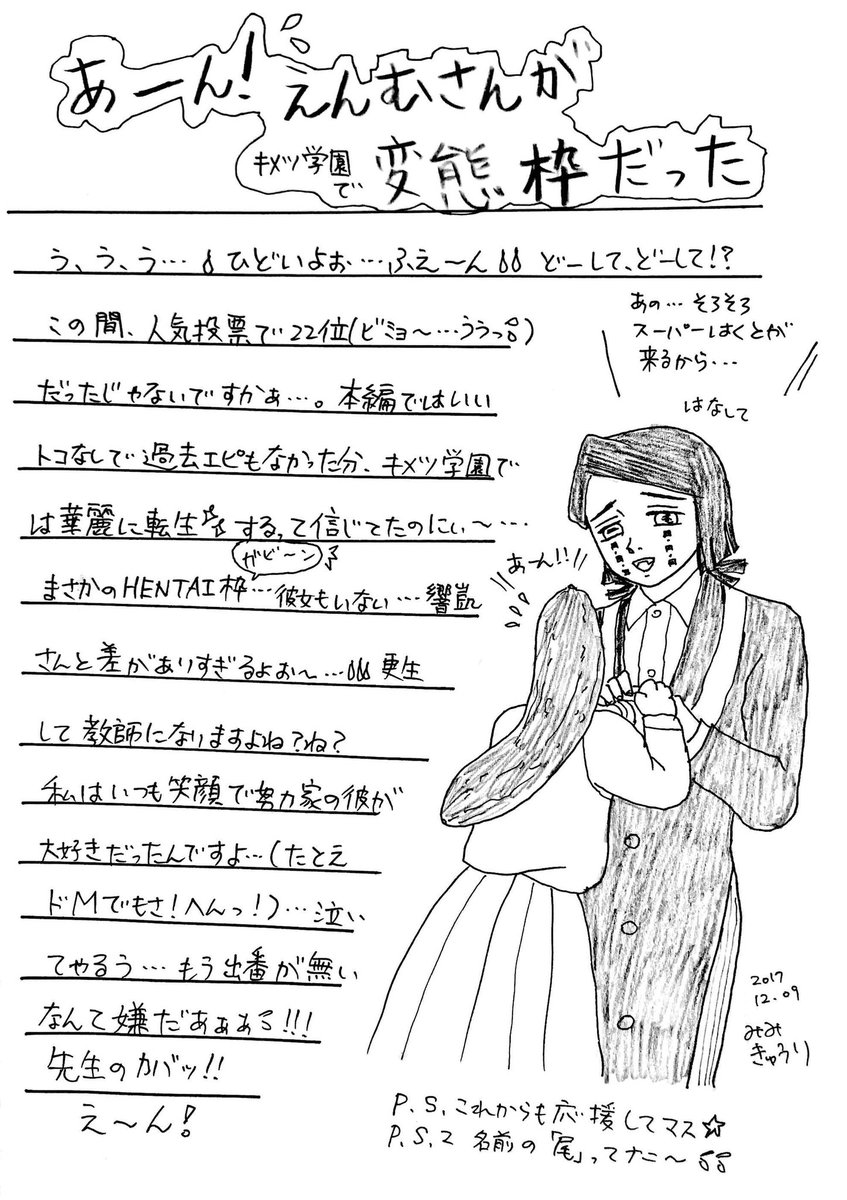 あーん!えんむさんが
キメツ学園で変態枠だった
う、う、う…ひどいよぉ…ふえ〜ん どーして、どーして!?
この間、人気投票で22位(ビミョ〜…ううっ)
だったじゃないですかぁ…。本編ではいい
トコなしで過去エピもなかった分、キメツ学園で
は華麗に転生するって信じてたのにぃ〜…
ガビ〜ン
まさかのHENTAI枠…彼女もいない…響凱
さんと差がありすぎるよぉ〜…更生
して教師になりますよね?ね?
私はいつも笑顔で努力家の彼が
大好きだったんですよ…(たとえ
ドMでもさ!へんっ!)…泣い
てやるう…もう出番が無い
なんて嫌だあぁぁぁ!!!
先生のカバッ!!
え〜ん!
あの…そろそろ
スーパーはくとが
来るから…
はなして
あーん!!
2017
12.09
みみ
きゅうり
P.S.これからも応援してマス☆
P.S.2 名前の「尾」ってナニ〜